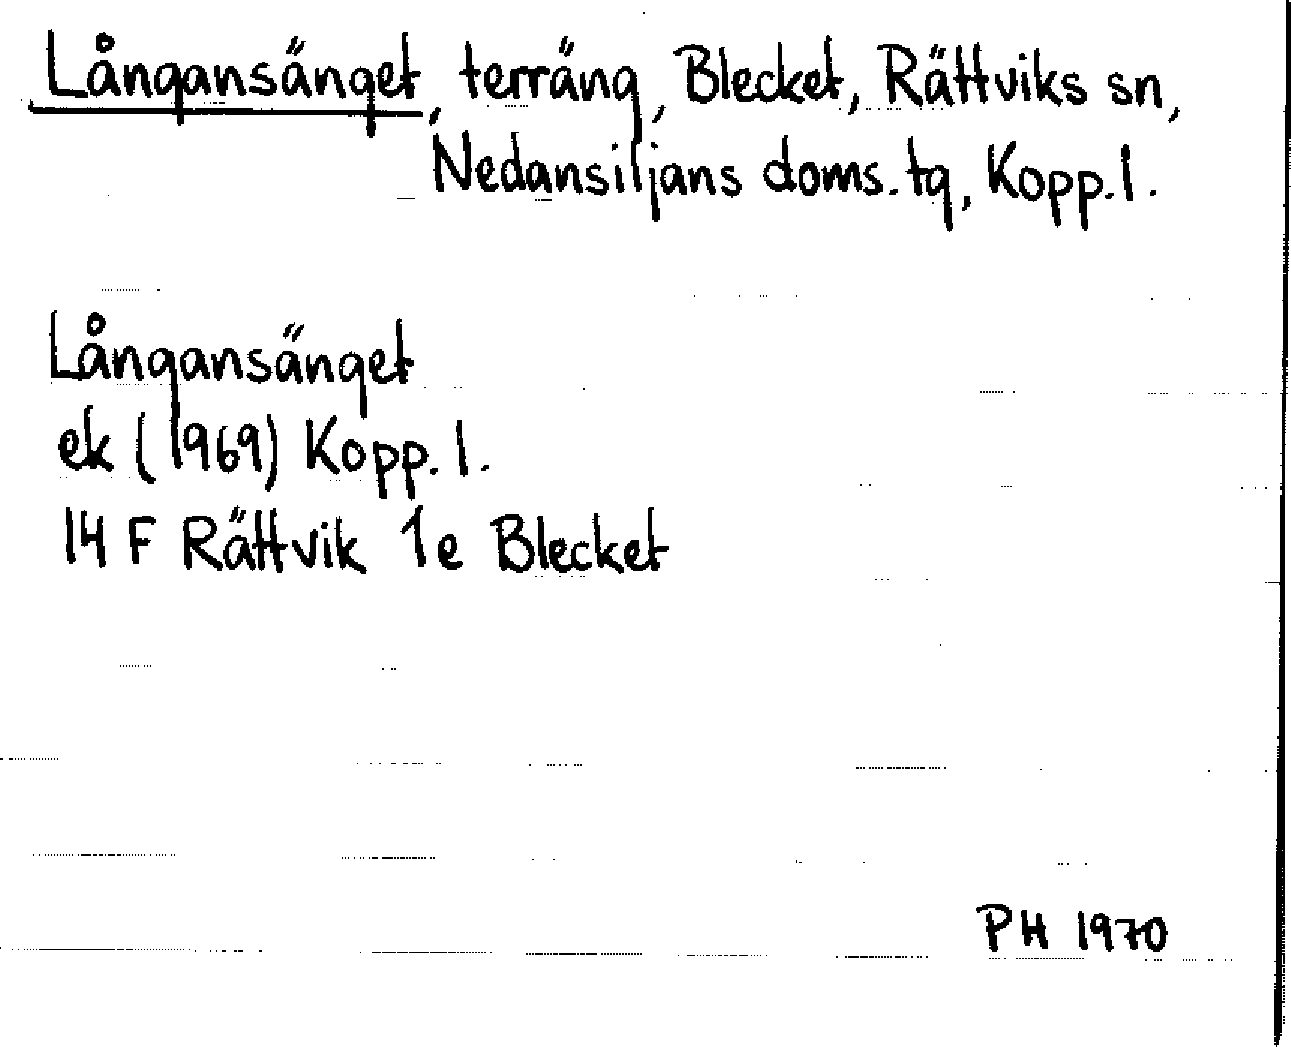 Långansänget, terräng, Blecket, Rättviks sn,
Nedansiljans doms. tg, Kopp. l.
Långansänget
ek (1969) Kopp. l.
14 F Rättvik 1e Blecket
PH 1970